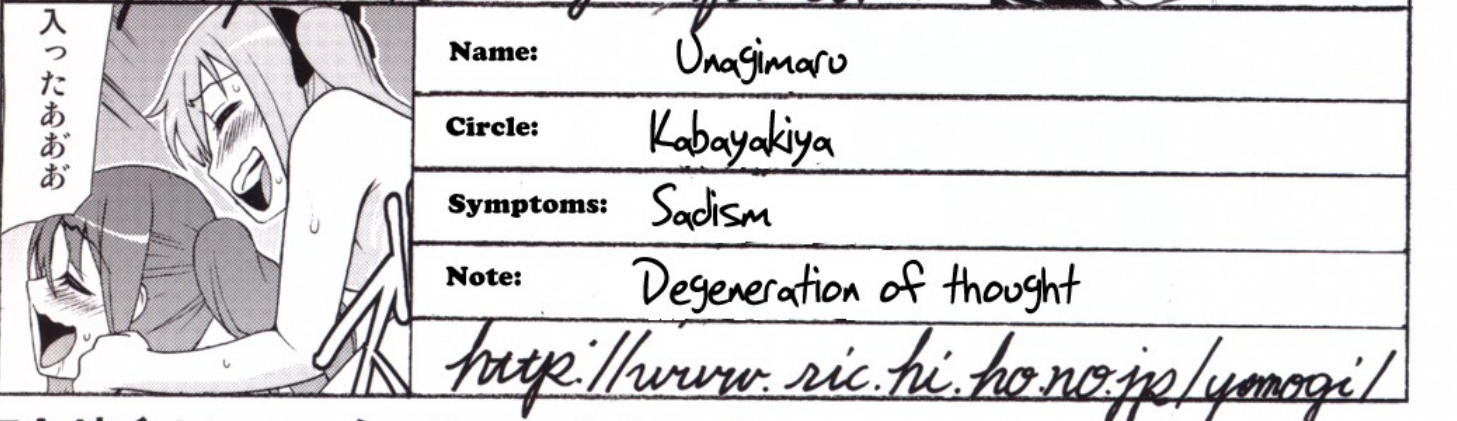 入ったあぁ゛ぁ゛
Name: Unagimaru
Circle: Kabayakiya
Symptoms: Sadism
Note: Degeneration of thought
http://www.ric.hi.ho.no.jp/yomogi/